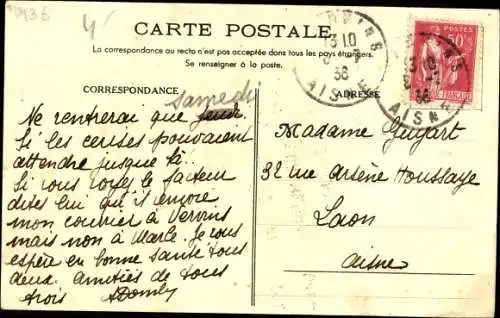 1936
CARTE POSTALE
La correspondance au recto n'est pas acceptée dans tous les pays étrangers.
Se renseigner à la poste.
CORRESPONDANCE
ADRESSE
samedi
Ne rentrerai que jeudi
Si les ceuses pouvaient
attendre jusque là..
Si vous voyez le facteur
dites lui qu'il envoie
mon courrier à Vervins
mais non à Marle. Je vous
espère en bonne santé tous
deux. Amitiés de tous
trois
Madame Guyart
32 rue Arsène Houssaye
Laon
Aisne
13 10
36
AISNE
POSTES
50c
13 10
36
AISNE